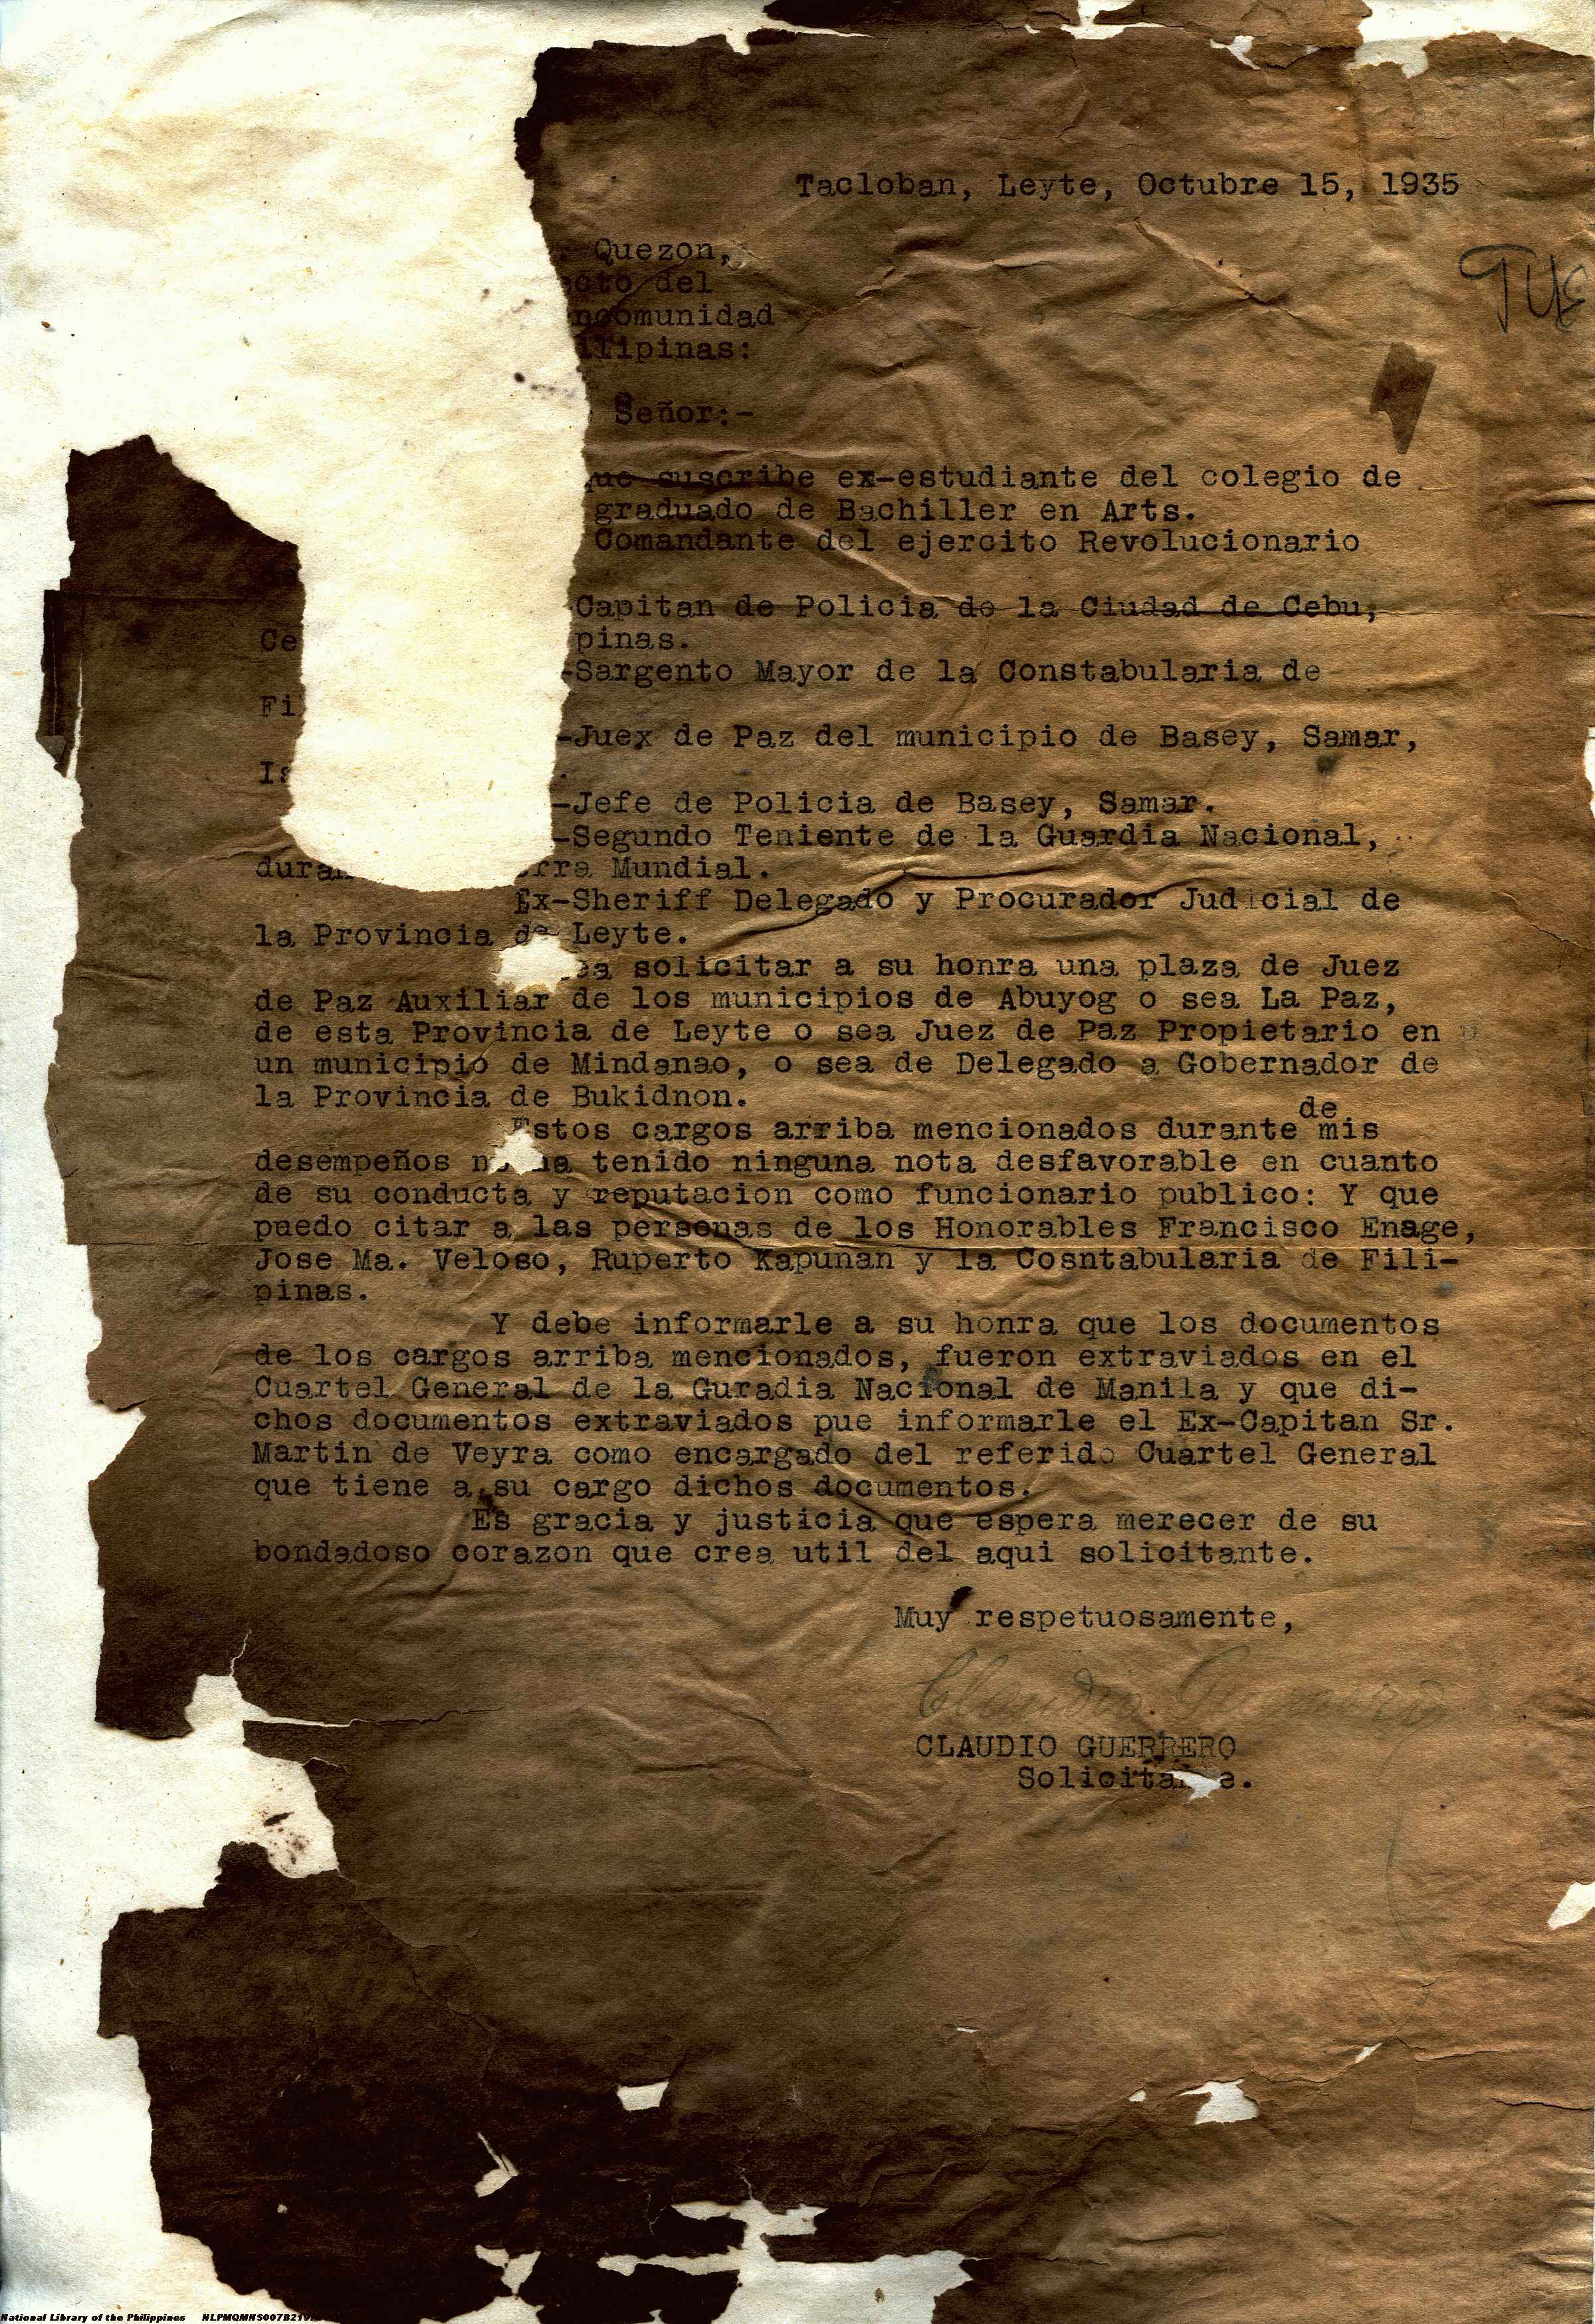 Tacloban, Leyte, Octubre 15, 1935
Quezon,
cto del
ncomunidad
ilipinas:
Señor:-
que suscribe ex-estudiante del colegio de
graduado de Bachiller en Arts.
Comandante del ejercito Revolucionario
Capitan de Policia de la Ciudad de Cebu,
Ce pinas.
-Sargento Mayor de la Constabularia de
Fi
-Juex de Paz del municipio de Basey, Samar,
Is .
-Jefe de Policia de Basey, Samar.
-Segundo Teniente de la Guardia Nacional,
duran rra Mundial.
Ex-Sheriff Delegado y Procurador Judicial de
la Provincia de Leyte.
ea solicitar a su honra una plaza de Juez
de Paz Auxiliar de los municipios de Abuyog o sea La Paz,
de esta Provincia de Leyte o sea Juez de Paz Propietario en
un municipio de Mindanao, o sea de Delegado a Gobernador de
la Provincia de Bukidnon.
Estos cargos arriba mencionados durante de mis
desempeños no ha tenido ninguna nota desfavorable en cuanto
de su conducta y reputacion como funcionario publico: Y que
puedo citar a las personas de los Honorables Francisco Enage,
Jose Ma. Veloso, Ruperto Kapunan y la Cosntabularia de Fili-
pinas.
Y debe informarle a su honra que los documentos
de los cargos arriba mencionados, fueron extraviados en el
Cuartel General de la Guradia Nacional de Manila y que di-
chos documentos extraviados pue informarle el Ex-Capitan Sr.
Martin de Veyra como encargado del referido Cuartel General
que tiene a su cargo dichos documentos.
Es gracia y justicia que espera merecer de su
bondadoso corazon que crea util del aqui solicitante.
Muy respetuosamente,
Claudio Guerrero
CLAUDIO GUERRERO
Solicitante.
National Library of the Philippines NLPMQMNS007B219